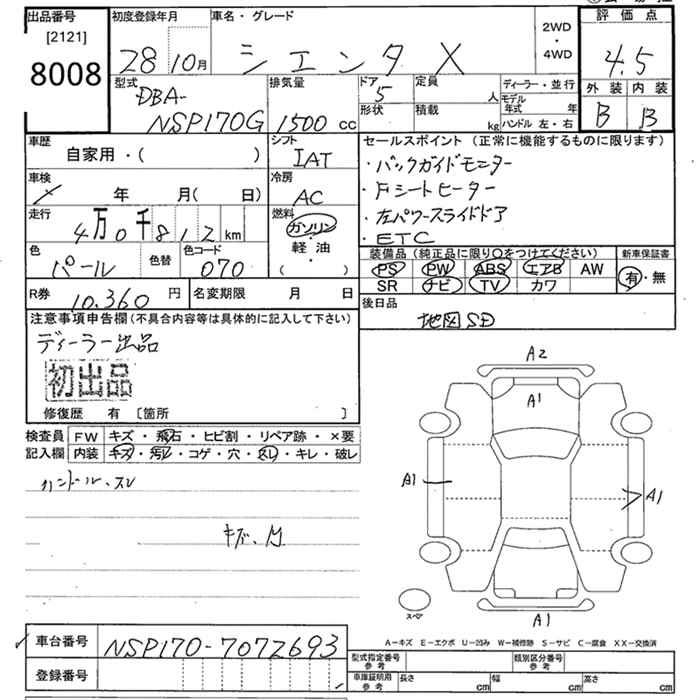 出品番号
[2121]
8008
初度登録年月
28 10月
車名・グレード
シエンタ X
2WD
・
4WD
評価点
4.5
外装 内装
B B
型式
DBA-
NSP170G
排気量
1500 cc
ドア
5
形状
定員
人
積載
kg
ディーラー・並行
モデル年式 年
ハンドル 左・右
車歴
自家用・( )
シフト
IAT
車検
年 月( 日)
冷房
AC
走行
4万0千812km
燃料
ガソリン
・
軽油
( )
色
パール
色替
色コード
070
R券
10,360 円
名変期限 月 日
セールスポイント (正常に機能するものに限ります)
・バックガイドモニター
・Fシートヒーター
・左パワースライドドア
・ETC
装備品 (純正品に限り○をつけてください)
新車保証書
PS PW ABS エアB AW
SR ナビ TV カワ
有・無
後日品
地図SD
注意事項申告欄(不具合内容等は具体的に記入して下さい)
ディーラー出品
初出品
修復歴 有 〔箇所 〕
検査員
記入欄
FW キズ・飛石・ヒビ割・リペア跡・×要
内装 キズ・汚レ・コゲ・穴・スレ・キレ・破レ
ハンドル、スレ
A2
A1
A1
A1
A1
スペア
A−キズ E−エクボ U−凹み W−補修跡 S−サビ C−腐食 XX−交換済
車台番号
NSP170-7072693
登録番号
型式指定番号
参考
類別区分番号
参考
車庫証明用
参考
長さ cm
幅 cm
高さ cm